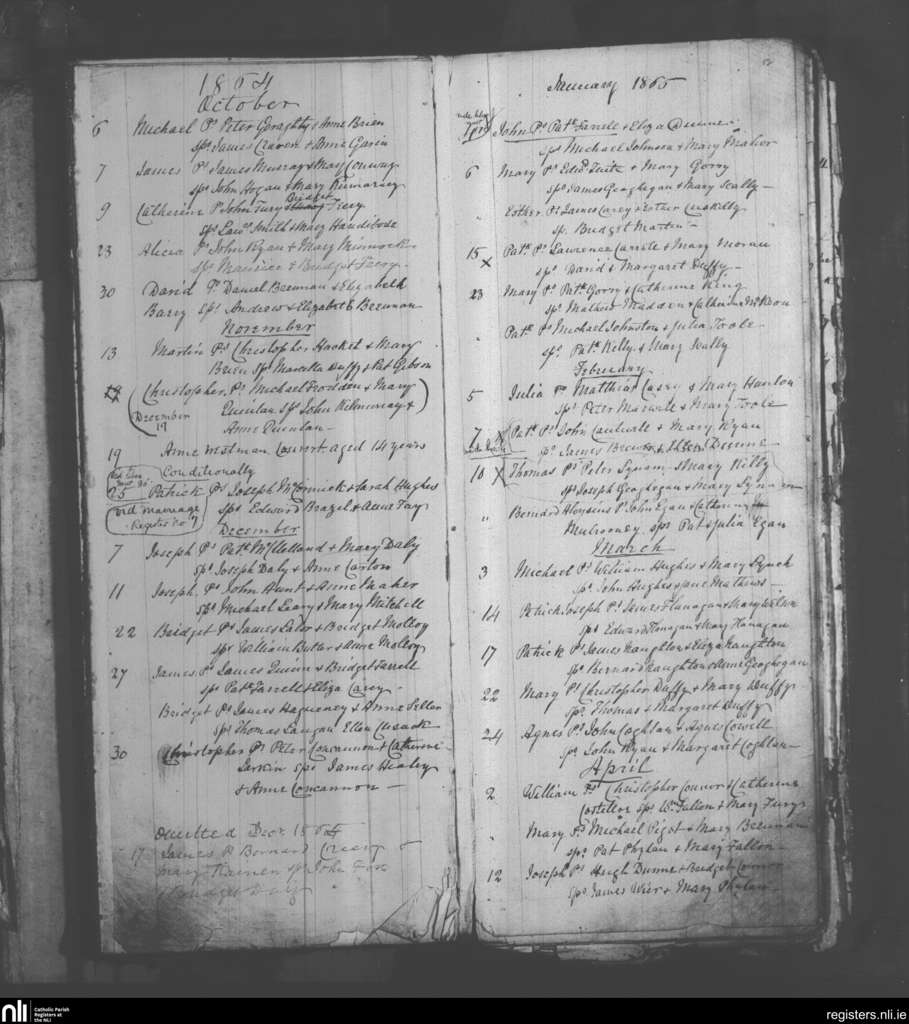 1864
October
6 Michael Ps Peter Geraghty & Anne Brien
sps James Craven & Anne Gavin
7 James Ps James Murray & Mary Conway
sps John Hogan & Mary
9 Catherine P John Fury & Bridget Fury
sps Lawe Smith & Mary Handibode
23 Alicia Ps John Ryan & Mary
sps Maurice & Bridget
30 David Ps Daniel Beenan & Elizabeth
Barry sps Andrew & Elizabeth Beenan
November
13 Martin Ps Christopher Hacket & Mary
Brien sps Marcella Duffy & Pat Gibson
Christopher Ps Michael & Mary
December 17
Quinlan sps John &
Anne Quinlan
19 Anne Convert aged 14 years
Conditionally
25 Patrick Ps Joseph McCormick & Sarah Hughes
vid marriage
Register No 7
sps Edward Brazel & Anne Fay
December
7 Joseph Ps Patk McClelland & Mary Daly
sps Joseph Daly & Anne Carlon
11 Joseph Ps John Hunt & Anne Maher
sps Michael Leary & Mary Mitchell
22 Bridget Ps James Lalor & Bridget Molloy
sps William Butler & Anne Molloy
27 James Ps James Quinn & Bridget Farrell
sps Patk Farrell & Eliza Carey
Bridget Ps James & Anne
sps Thomas Langan Ellen Cusack
30 Christopher Ps Peter Concannon & Catherine
Larkin sps James Healey
& Anne Concannon
Omitted Decr 1864
17 James P Bernard
Mary sps John Fox
Bridget Daly
January 1865
John Ps Patk Farrell & Eliza Dunne
sps Michael Johnson & Mary Maher
6 Mary Ps Edwd Tuite & Mary Gorry
sps James Geoghegan & Mary Scally
" Esther Ps James Carey & Esther
sp. Bridget Martin
15 Patk Ps Lawrence & Mary Moran
x sps David & Margaret Duffy
23 Mary Ps Patk Gorry & Catherine King
sps Mathew Madden & Catherine McKeon
" Patk Ps Michael Johnston & Julia Toole
sps Patk Kelly & Mary Scally
February
5 Julia Ps Matthias Casey & Mary Hanlon
sps Peter & Mary Toole
7 x Patk Ps John & Mary Ryan
sps James & Ellen Dunne
10 X Thomas Ps Peter Synan & Mary Killy
sps Joseph Geoghegan & Mary Synan
" Bernard Aloysius P John Egan & Catherine
Mulrooney sps Pat & Julia Egan
March
3 Michael Ps William Hughes & Mary Lynch
sps John Hughes & Jane Mathews
14 Patrick Joseph Ps James Flanagan & Mary
sps Edward Flanagan & Mary Flanagan
17 Patrick Ps James Naughton & Eliza Naughton
sps Bernard Naughton & Anne Geoghegan
22 Mary Ps Christopher Duffy & Mary Duffy
sps Thomas & Margaret Duffy
24 Agnes Ps John Coghlan & Agnes Cowell
sps John Ryan & Margaret Coghlan
April
2 William Ps Christopher Connor & Catherine
Costello sps W. Fallon & Mary Fury
" Mary Ps Michael Pigot & Mary Beenan
sps Pat Phelan & Mary Fallon
12 Joseph Ps Hugh Dunne & Bridget Connor
sps James Wier & Mary Phelan
nli Catholic Parish
Registers at
the NLI
registers.nli.ie